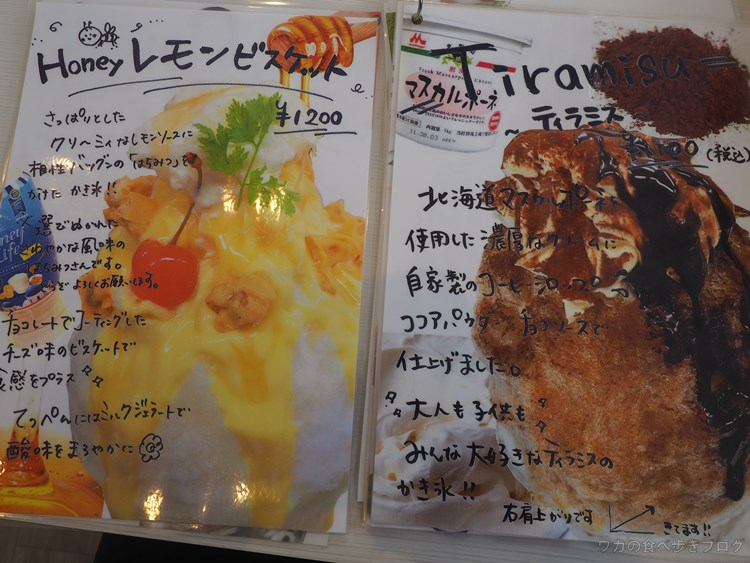 Honey レモンビスケット
¥1200
さっぱりとした
クリーミィなレモンソースに
相性バツグンの「はちみつ」を
かけた かき氷!!
選びぬかれた
やかな風味の
はちみつさんです。
よろしくお願いします。
チョコレートでコーティングした
チーズ味のビスケットで
食感をプラス
てっぺんにはミルクジェラートで
酸味をまろやかに
Tiramisu
~ ティラミス
(税込)
森永
Fresh Mascarpone Cheese
マスカルポーネ
北海道マスカルポーネを
使用した濃厚なクリームに
自家製のコーヒーシロップ
ココアパウダー チョコソースで
仕上げました。
大人も子供も
みんな大好きなティラミスの
かき氷!!
右肩上がりです
きてます!!
ワカの食べ歩きブログ